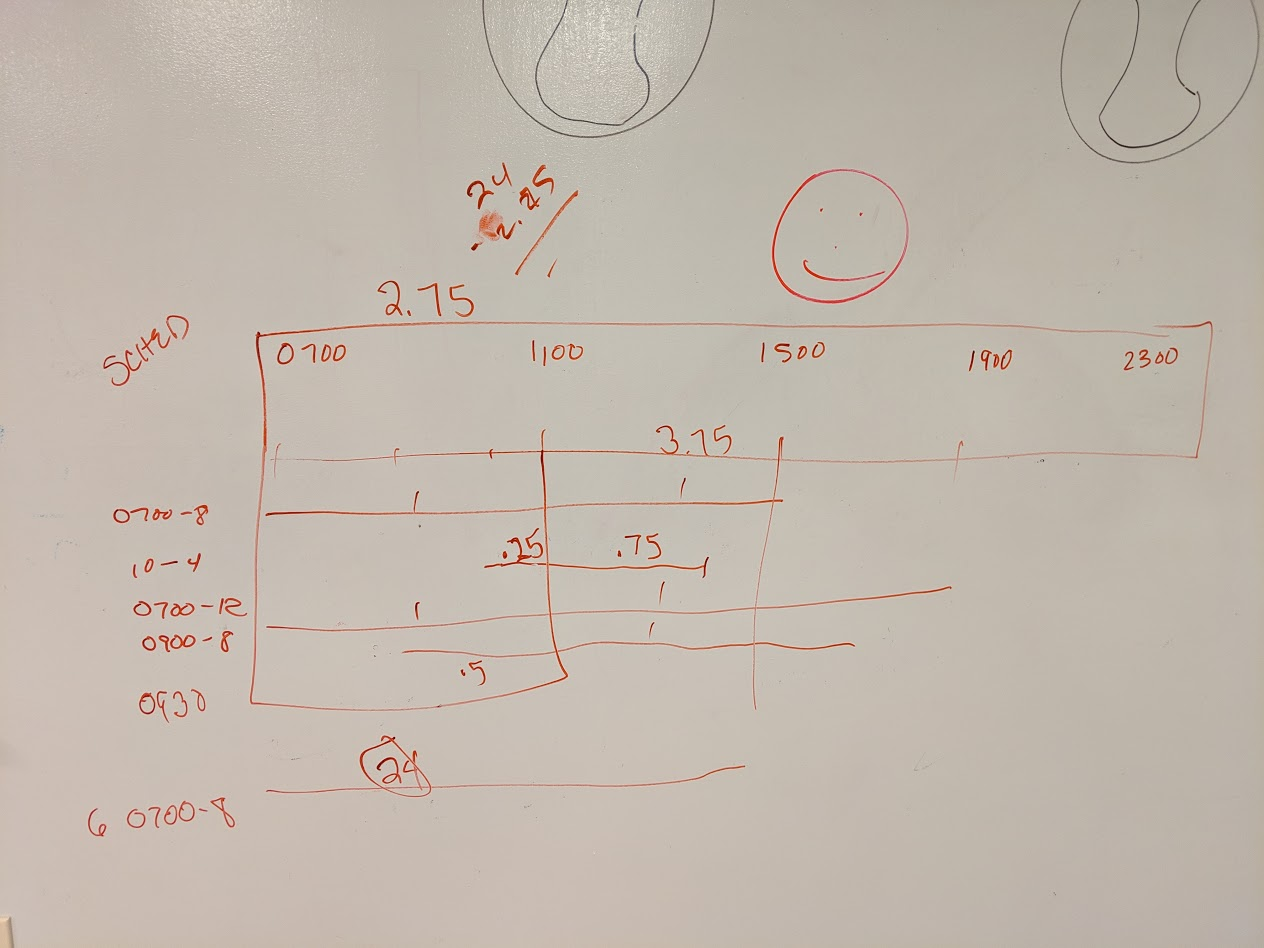 24
2.25
2.75
SCHED
0700 1100 1500 1900 2300
3.75
0700-8 1 1
10-4 .25 .75
0700-12 1 1
0900-8 1
.5
0930
24
6 0700-8